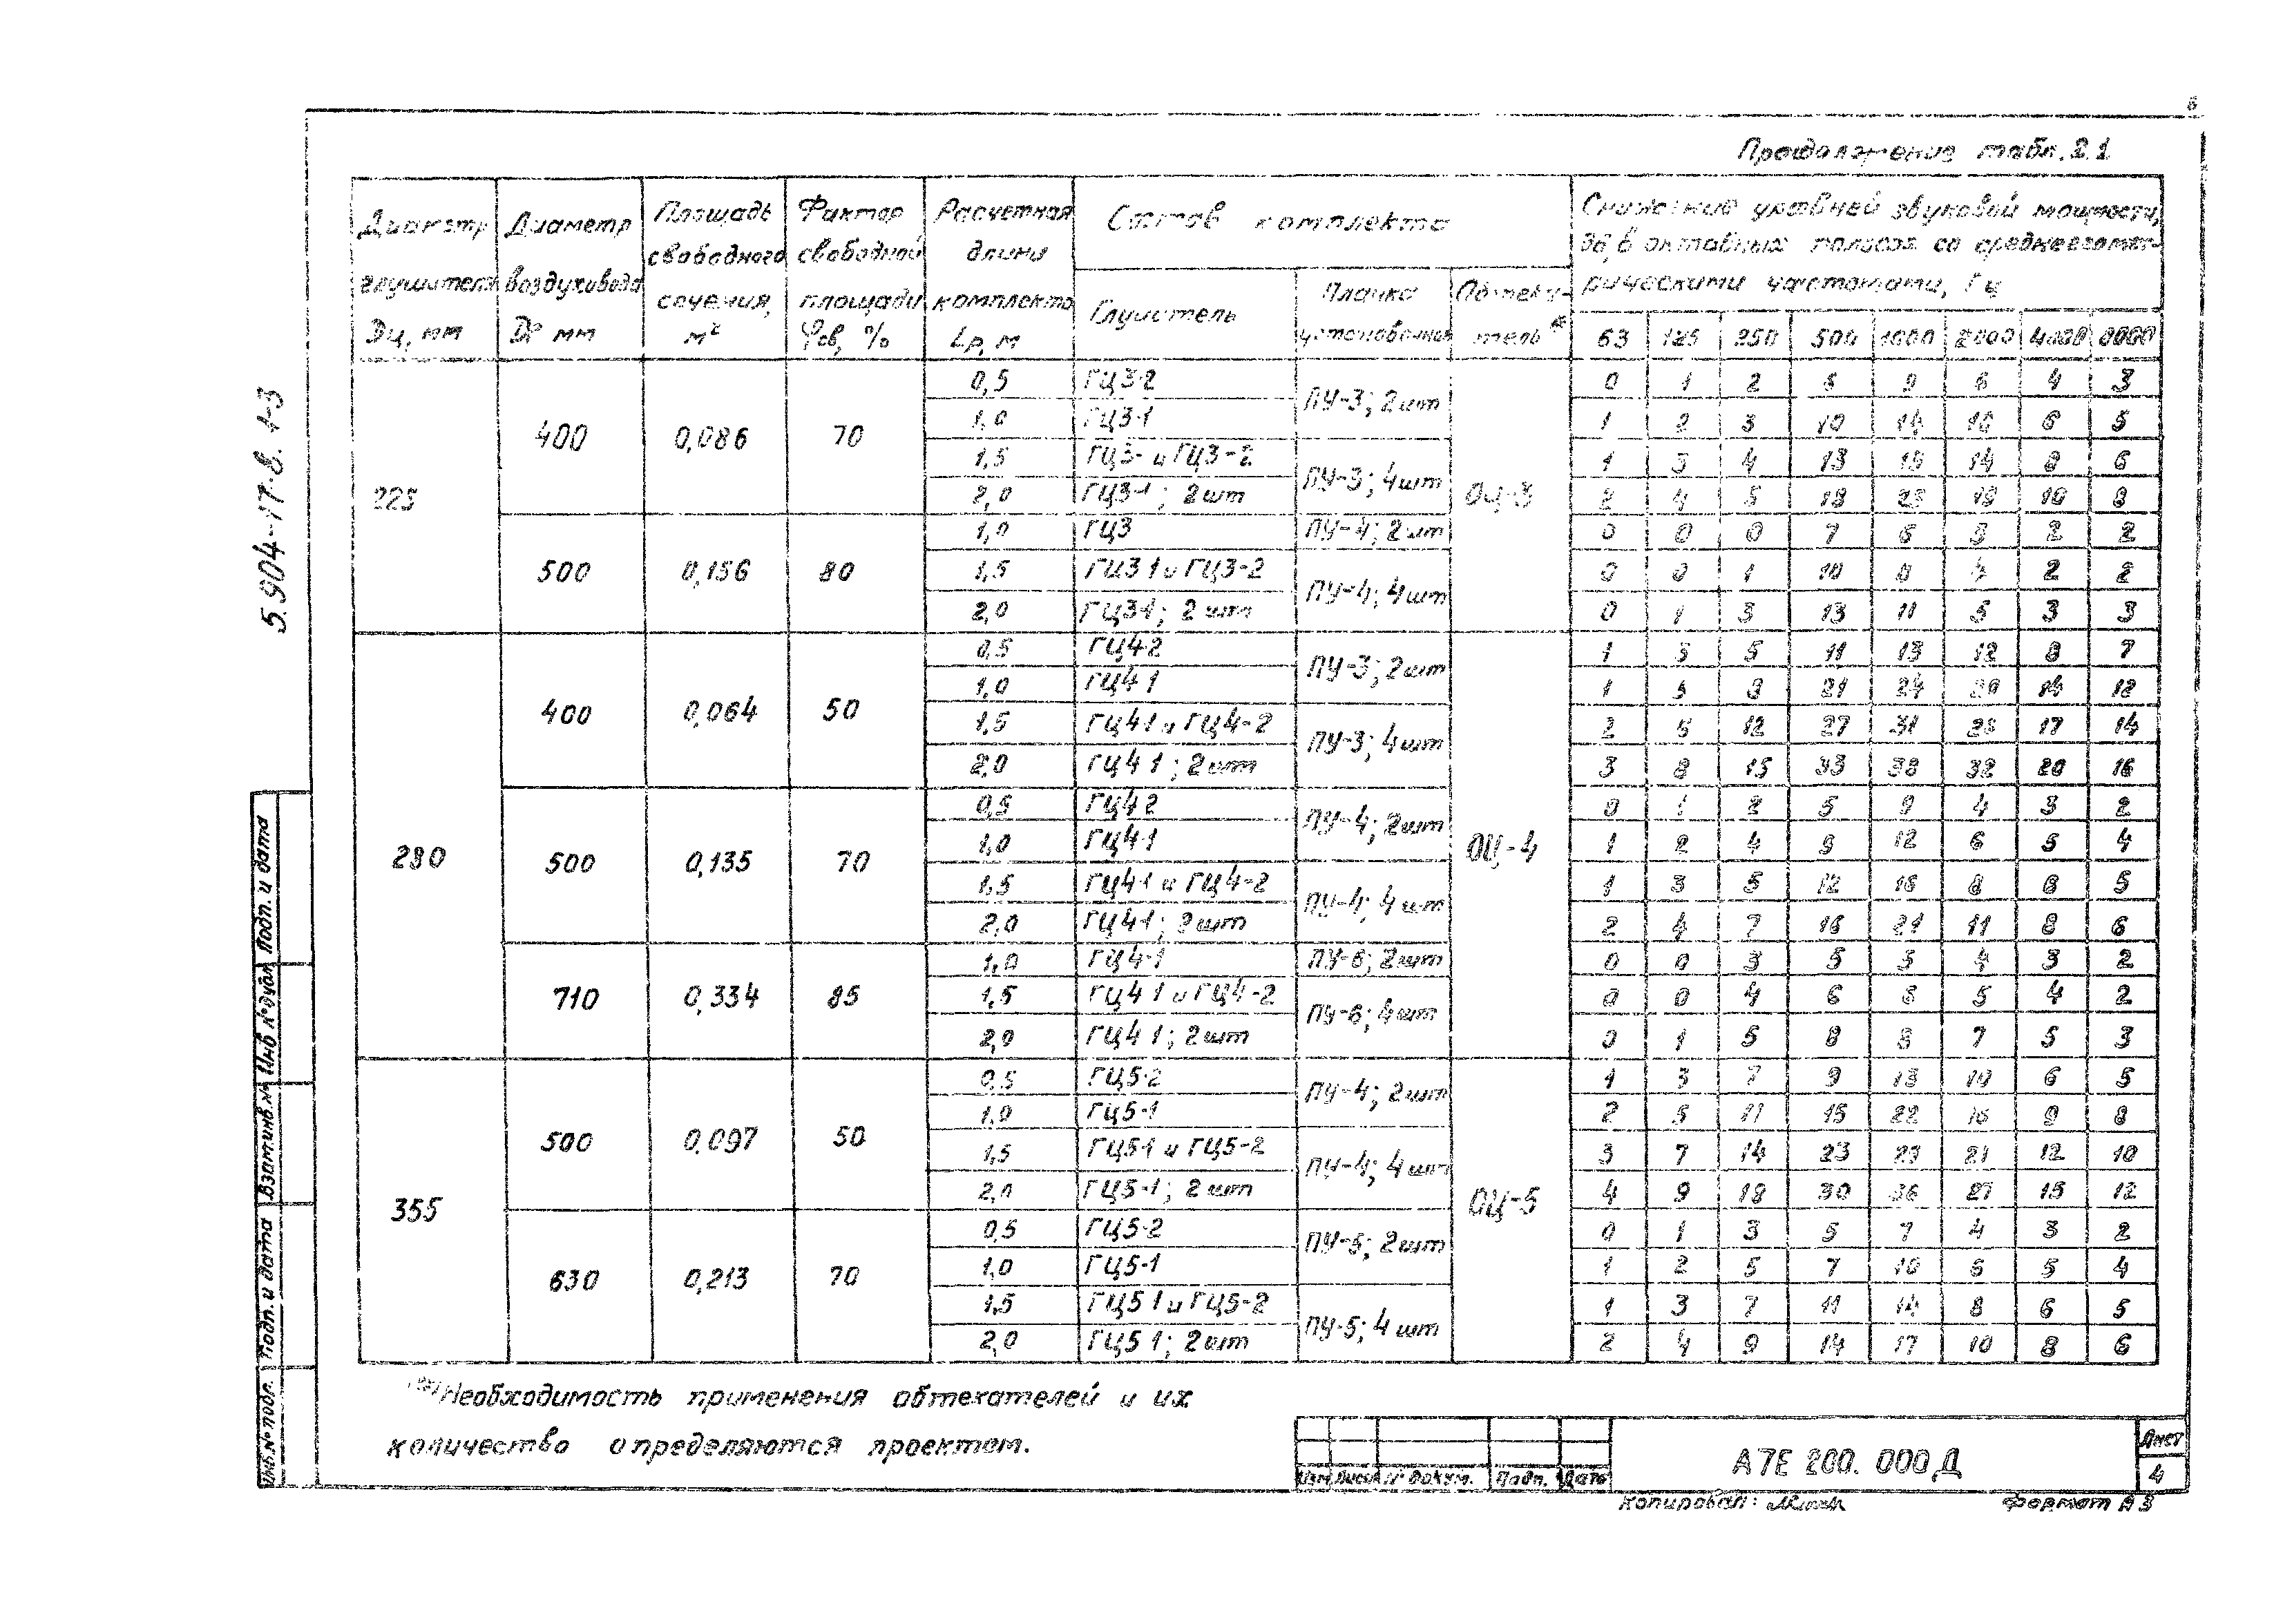 6
Продолжение табл. 2.1
Диаметр глушителя Dц, мм | Диаметр воздуховода D, мм | Площадь свободного сечения, м² | Фактор свободной площади φсв, % | Расчетная длина комплекта Lр, м | Состав комплекта | Снижение уровней звуковой мощности, дБ, в октавных полосах со среднегеомет-рическими частотами, Гц
Глушитель | Планка установочная | Обтека-тель* | 63 | 125 | 250 | 500 | 1000 | 2000 | 4000 | 8000
225 | 400 | 0,086 | 70 | 0,5 | ГЦ3-2 | ПУ-3; 2шт | ОЦ-3 | 0 | 1 | 2 | | 9 | 6 | 4 | 3
1,0 | ГЦ3-1 | 1 | 2 | 3 | 10 | 14 | 10 | 6 | 5
1,5 | ГЦ3- и ГЦ3-2 | ПУ-3; 4шт | 1 | 3 | 4 | 13 | | 14 | 8 | 6
2,0 | ГЦ3-1; 2шт | 2 | 4 | 5 | 18 | 23 | | 10 | 8
500 | 0,156 | 80 | 1,0 | ГЦ3 | ПУ-4; 2шт | 0 | 0 | 0 | 7 | 6 | 3 | 2 | 2
1,5 | ГЦ3 1 и ГЦ3-2 | ПУ-4; 4шт | 0 | 0 | 1 | 10 | | 4 | 2 | 2
2,0 | ГЦ3-1; 2шт | 0 | 1 | 3 | 13 | 11 | 5 | 3 | 3
280 | 400 | 0,064 | 50 | 0,5 | ГЦ4-2 | ПУ-3; 2шт | ОЦ-4 | 1 | 3 | 5 | 11 | 13 | 12 | 8 | 7
1,0 | ГЦ4 1 | 1 | 5 | 8 | 21 | 24 | 20 | 14 | 12
1,5 | ГЦ4-1 и ГЦ4-2 | ПУ-3; 4шт | 2 | 6 | 12 | 27 | 31 | 26 | 17 | 14
2,0 | ГЦ4 1; 2шт | 3 | 8 | 15 | 33 | 38 | 32 | 20 | 16
500 | 0,135 | 70 | 0,5 | ГЦ4 2 | ПУ-4; 2шт | 0 | 1 | 2 | 5 | 9 | 4 | 3 | 2
1,0 | ГЦ4-1 | 1 | 2 | 4 | 9 | 12 | 6 | 5 | 4
1,5 | ГЦ4-1 и ГЦ4-2 | ПУ-4; 4шт | 1 | 3 | 5 | 12 | 16 | 8 | 6 | 5
2,0 | ГЦ4-1; 2шт | 2 | 4 | 7 | 16 | 21 | 11 | 8 | 6
710 | 0,334 | 85 | 1,0 | ГЦ4-1 | ПУ-6; 2шт | 0 | 0 | 3 | 5 | 5 | 4 | 3 | 2
1,5 | ГЦ4 1 и ГЦ4-2 | ПУ-6; 4шт | 0 | 0 | 4 | 6 | 6 | 5 | 4 | 2
2,0 | ГЦ4 1; 2шт | 0 | 1 | 5 | 8 | 8 | 7 | 5 | 3
355 | 500 | 0,097 | 50 | 0,5 | ГЦ5-2 | ПУ-4; 2шт | ОЦ-5 | 1 | 3 | 7 | 9 | 13 | 10 | 6 | 5
1,0 | ГЦ5-1 | 2 | 5 | 11 | 15 | 22 | 16 | 9 | 8
1,5 | ГЦ5-1 и ГЦ5-2 | ПУ-4; 4шт | 3 | 7 | 14 | 23 | 29 | 21 | 12 | 10
2,0 | ГЦ5-1; 2шт | 4 | 9 | 18 | 30 | 36 | 27 | 15 | 12
630 | 0,213 | 70 | 0,5 | ГЦ5-2 | ПУ-5; 2шт | 0 | 1 | 3 | 5 | 7 | 4 | 3 | 2
1,0 | ГЦ5-1 | 1 | 2 | 5 | 7 | 10 | 6 | 5 | 4
1,5 | ГЦ5 1 и ГЦ5-2 | ПУ-5; 4шт | 1 | 3 | 7 | 11 | 14 | 8 | 6 | 5
2,0 | ГЦ5 1; 2шт | 2 | 4 | 9 | 14 | 17 | 10 | 8 | 6
Необходимость применения обтекателей и их
количество определяются проектом.
5.904-17.В.1-3
Подп. и дата
Инв № дубл
Взам.инв.№
Подп. и дата
Инв.№ подл.
Изм Лист № докум. Подп. Дата
А7Е 200.000Д
Лист
4
Копировал:
Формат А3